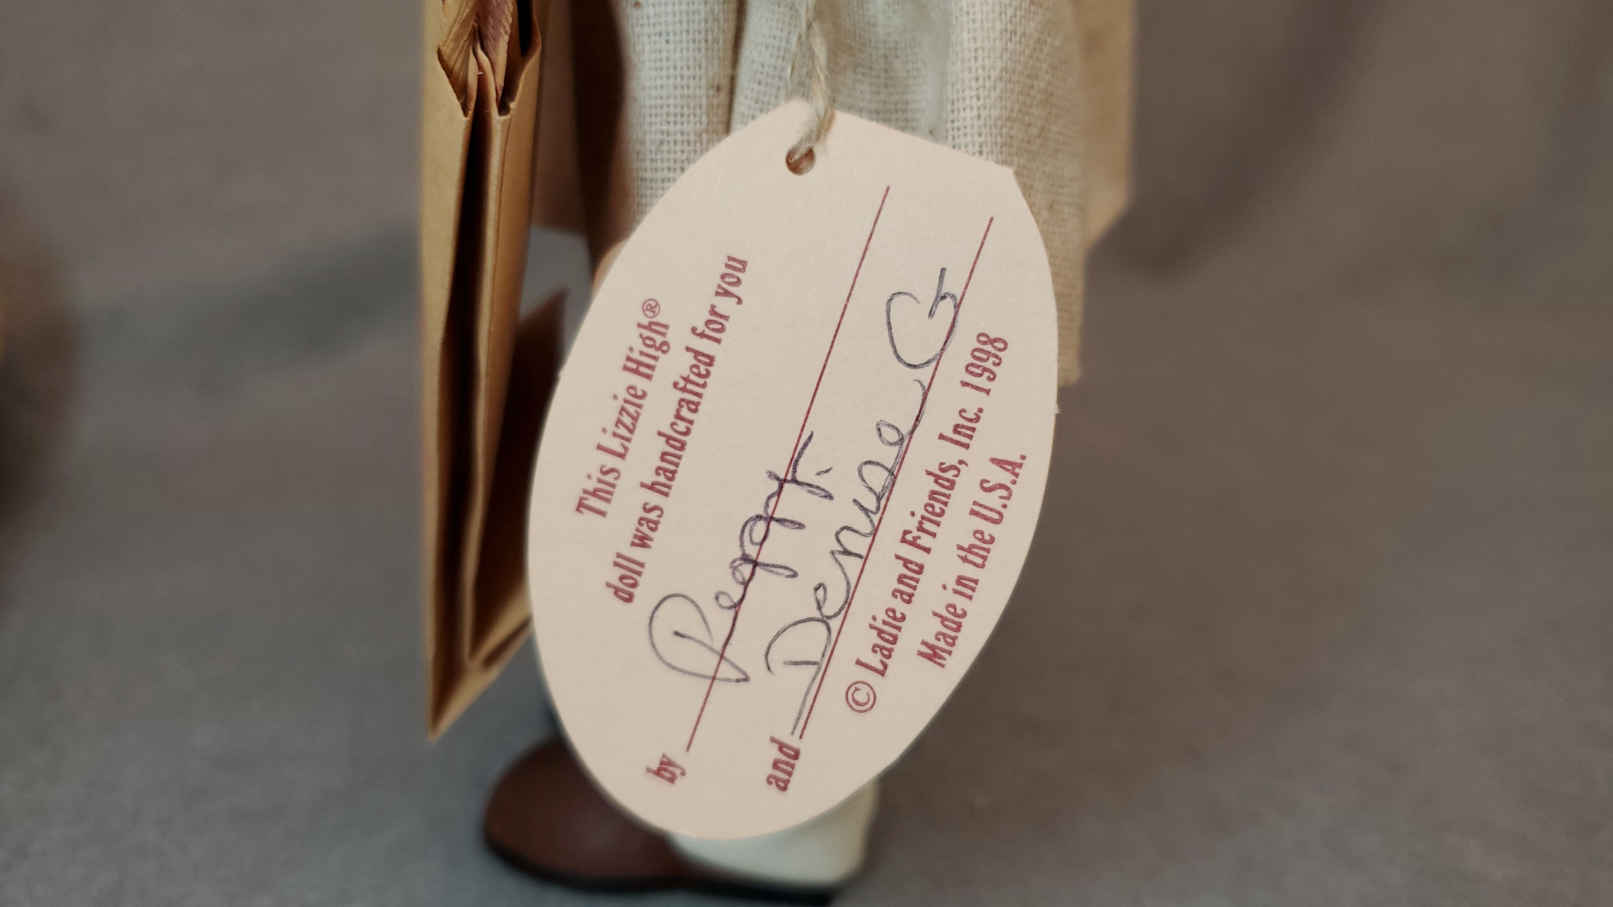 This Lizzie High®
doll was handcrafted for you
by Peggy K.
and Denise G
© Ladie and Friends, Inc. 1998
Made in the U.S.A.